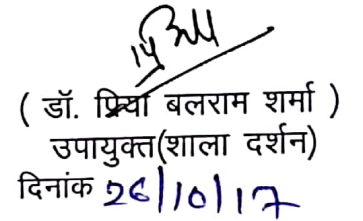 ( डॉ. प्रिया बलराम शर्मा )
उपायुक्त(शाला दर्शन)
दिनांक 26/10/17